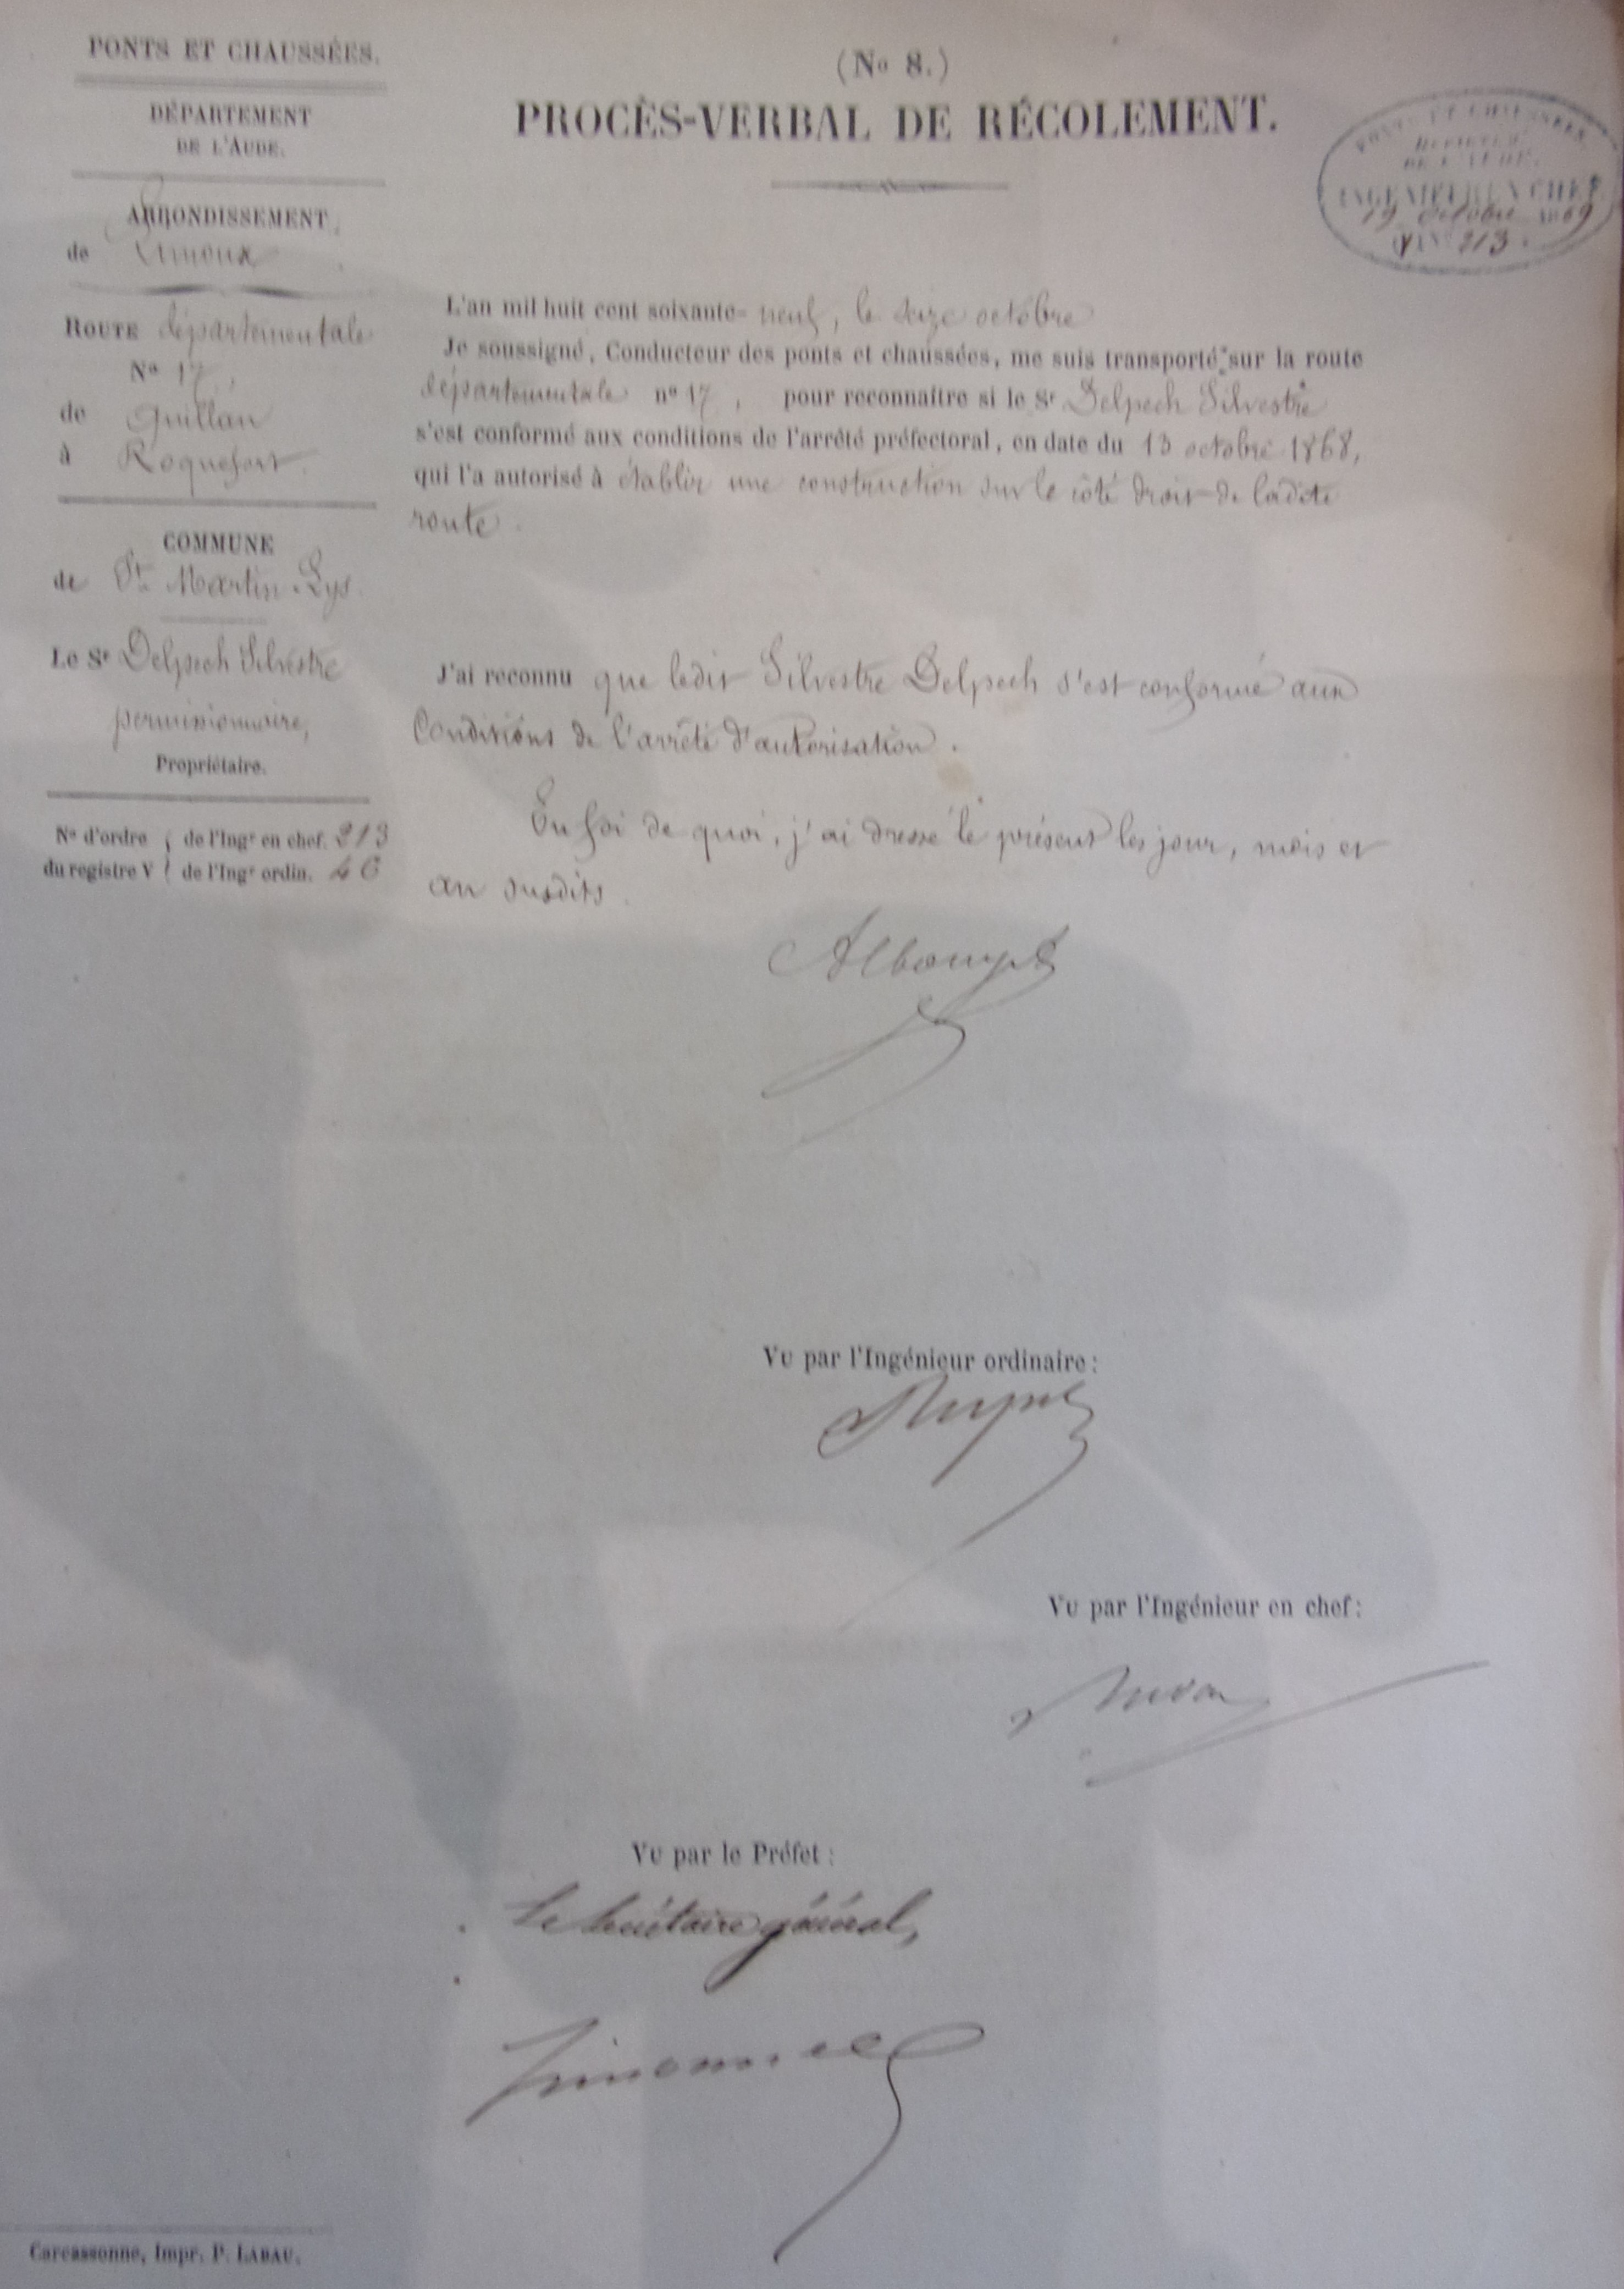 PONTS ET CHAUSSÉES.
DÉPARTEMENT
DE L'AUDE.
ARRONDISSEMENT
de Limoux
ROUTE départementale
No 17,
de Quillan
à Roquefort.
COMMUNE
de St Martin-Lys.
Le Sr Delpech Silvestre
permissionnaire,
Propriétaire.
No d'ordre { de l'Ingr en chef. 213
du registre V { de l'Ingr ordin. 46
(No 8.)
PROCÈS-VERBAL DE RÉCOLEMENT.
PONTS ET CHAUSSÉES
DE L'AUDE.
INGÉNIEUR EN CHEF
19 Octobre 1869
No 213
L'an mil huit cent soixante-neuf, le seize octobre
Je soussigné, Conducteur des ponts et chaussées, me suis transporté sur la route
départementale no 17, pour reconnaître si le Sr Delpech Silvestre
s'est conformé aux conditions de l'arrêté préfectoral, en date du 13 octobre 1868,
qui l'a autorisé à établir une construction sur le côté droit de ladite
route.
J'ai reconnu que ledit Silvestre Delpech s'est conformé aux
Conditions de l'arrêté d'autorisation.
En foi de quoi, j'ai dressé le présent les jour, mois et
an susdits.
Vu par l'Ingénieur ordinaire:
Vu par l'Ingénieur en chef:
Vu par le Préfet:
Le Secrétaire général,
Carcassonne, Impr. P. LABAU.